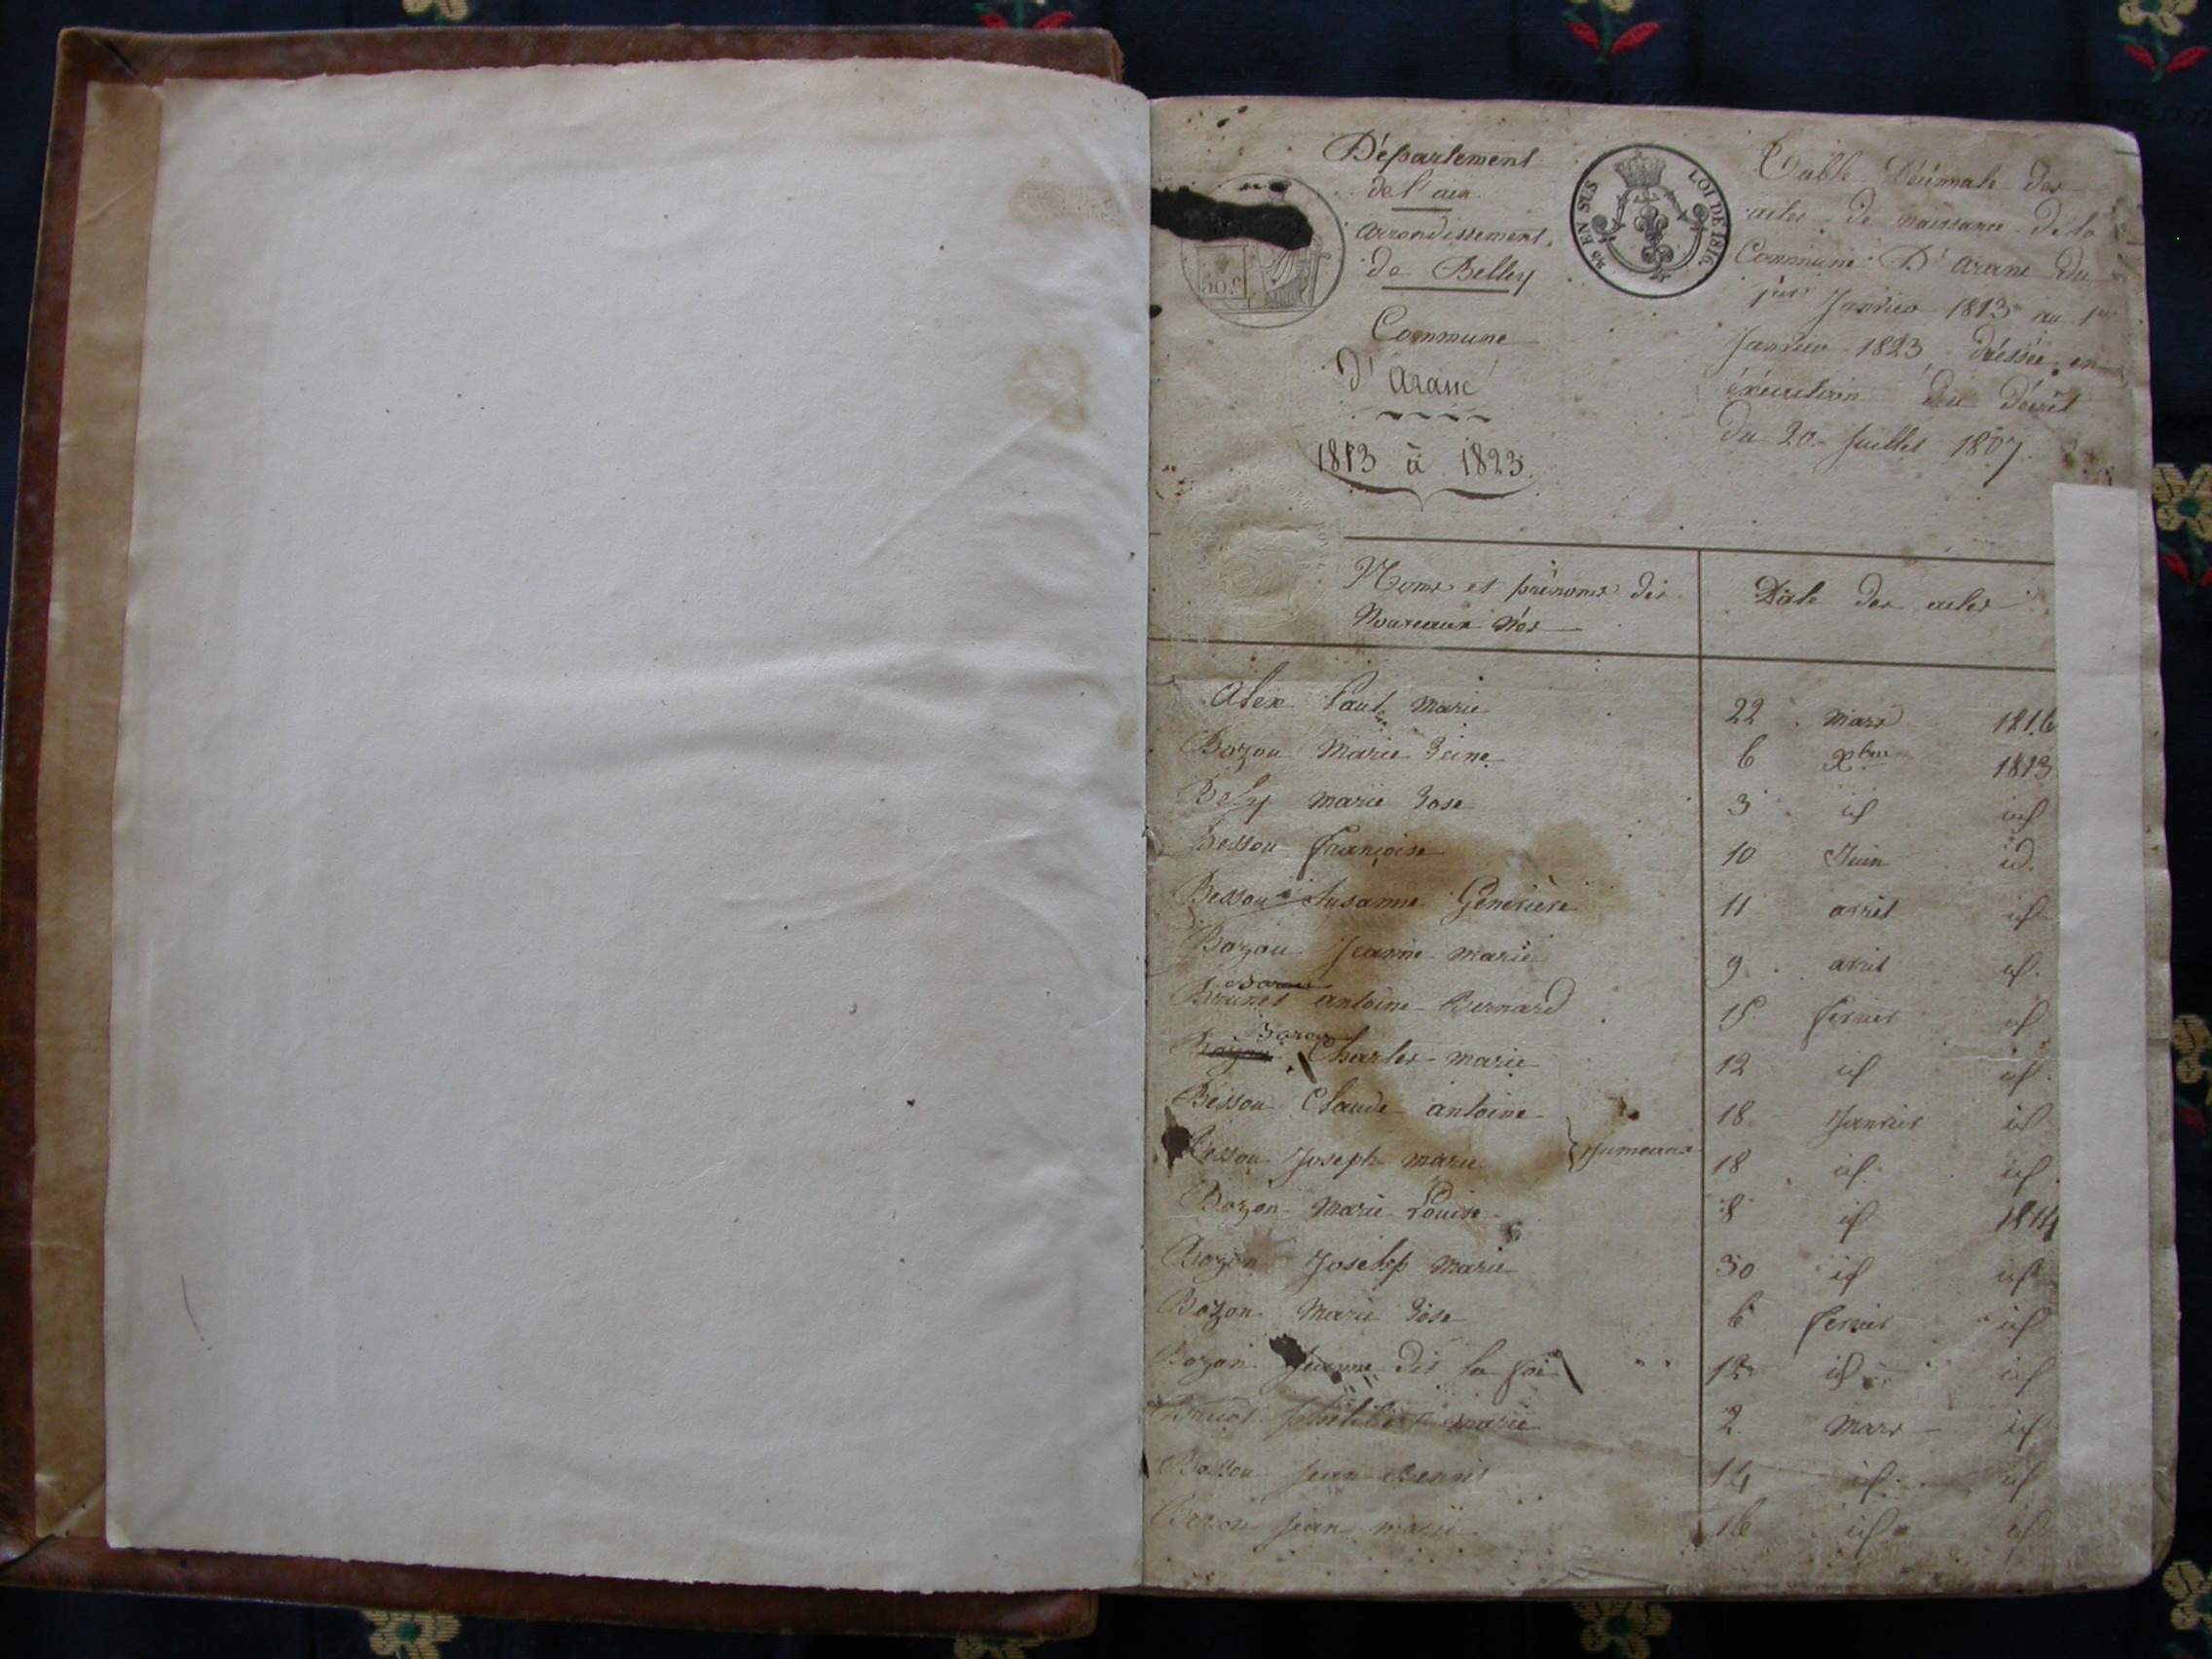 Département
de l'ain
arrondissement
de Belley
Commune
d'aranc
1813 à 1823
20 EN SUS
LOI DE 1816.
Table Décennale des
actes de naissance de la
Commune D'aranc du
1er Janvier 1813 au 1er
Janvier 1823 dréssée en
éxécution du décrèt
du 20 Juillet 1807.
Noms et prénoms des
Nouveaux Nés
Date des actes
Paul Marie 22 mars 1816
Bozon Marie Reine 6 Xbre 1813
Bely marie Rose 3 id id
Bessou françoise 10 Juin id.
Bessou Susanne Genevieve 11 avril id
Bozon Jeanne marie 9 avril id.
Brunet antoine Bernard 15 fevrier id
Charles marie 12 id id.
Bessou Claude antoine 18 Janvier id
Bessou Joseph marie Jumeaux 18 id. id
Bozon Marie Louise 8 id 1814
Bozon Joseph Marie 30 id id
Bozon Marie Rose 6 fevrier id
Bozon Jeanne dit la 12 id id
marie 2. Mars id
Bessou Jean 14 id. id
Jean marie 16 id id